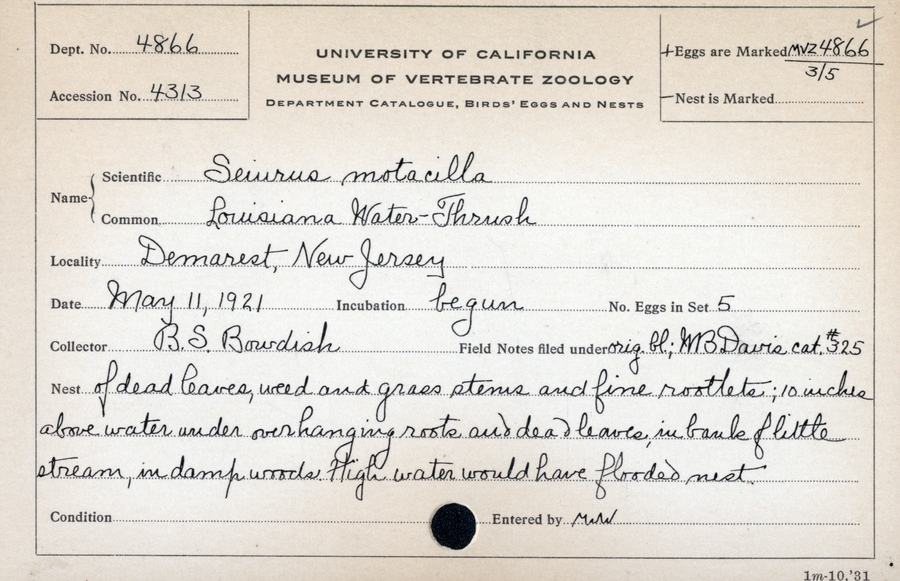 Dept. No. 4866
Accession No. 4313
UNIVERSITY OF CALIFORNIA
MUSEUM OF VERTEBRATE ZOOLOGY
DEPARTMENT CATALOGUE, BIRDS' EGGS AND NESTS
+Eggs are Marked MVZ 4866
3/5
–Nest is Marked
Name { Scientific Seiurus motacilla
Common Louisiana Water-Thrush
Locality Demarest, New Jersey
Date May 11, 1921 Incubation begun No. Eggs in Set 5
Collector B.S. Bowdish Field Notes filed under orig. bl.; WB Davis cat. #325
Nest of dead leaves, weed and grass stems and fine rootlets; 10 inches
above water under overhanging roots and dead leaves, in bank of little
stream, in damp woods. High water would have flooded nest.
Condition Entered by
1m-10,'31